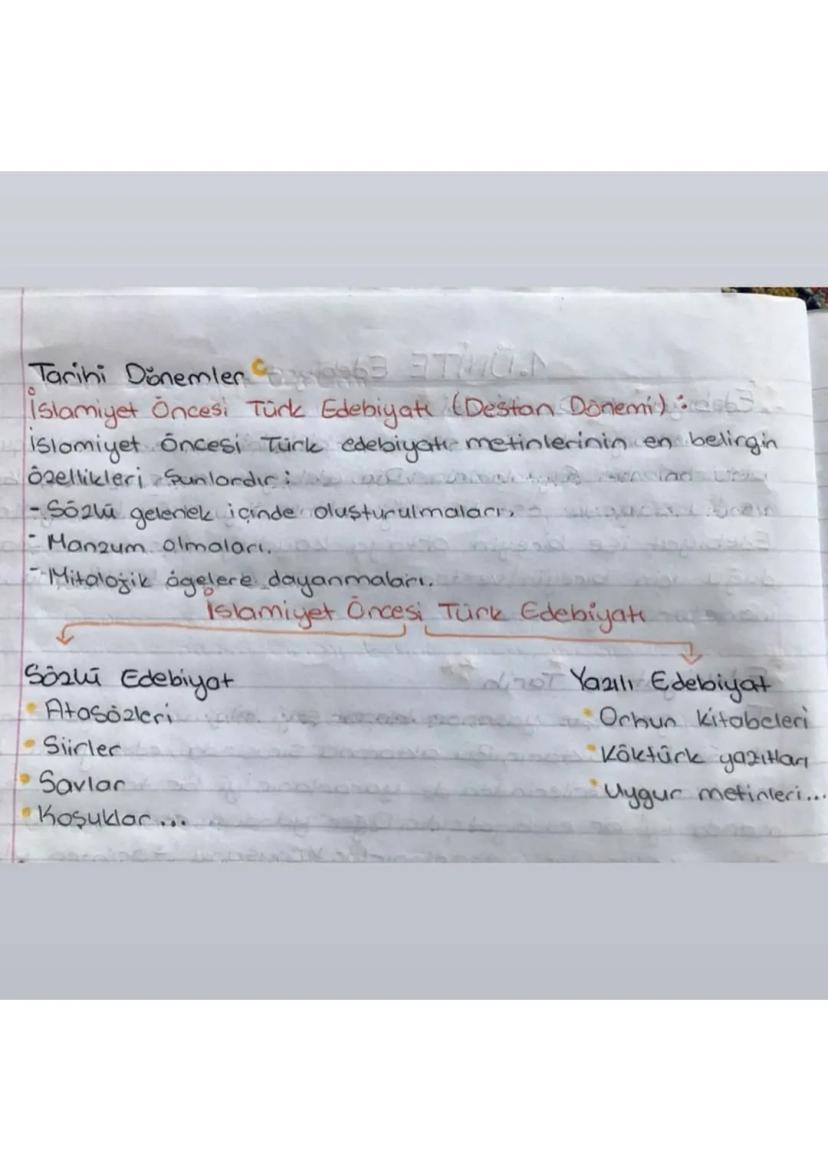 Tarihi Dönemler
İslamiyet Öncesi Türk Edebiyatı (Destan Dönemi) :
İslamiyet Öncesi Türk edebiyatı metinlerinin en belirgin
özellikleri Şunlardır :
- Sözlü gelenek içinde oluşturulmaları.
- Manzum olmaları.
- Mitolojik ögelere dayanmaları.
İslamiyet Öncesi Türk Edebiyatı
Sözlü Edebiyat
• Atasözleri
• Şiirler
• Savlar
• Koşuklar...
Yazılı Edebiyat
• Orhun Kitabeleri
• Köktürk yazıtları
• Uygur metinleri...